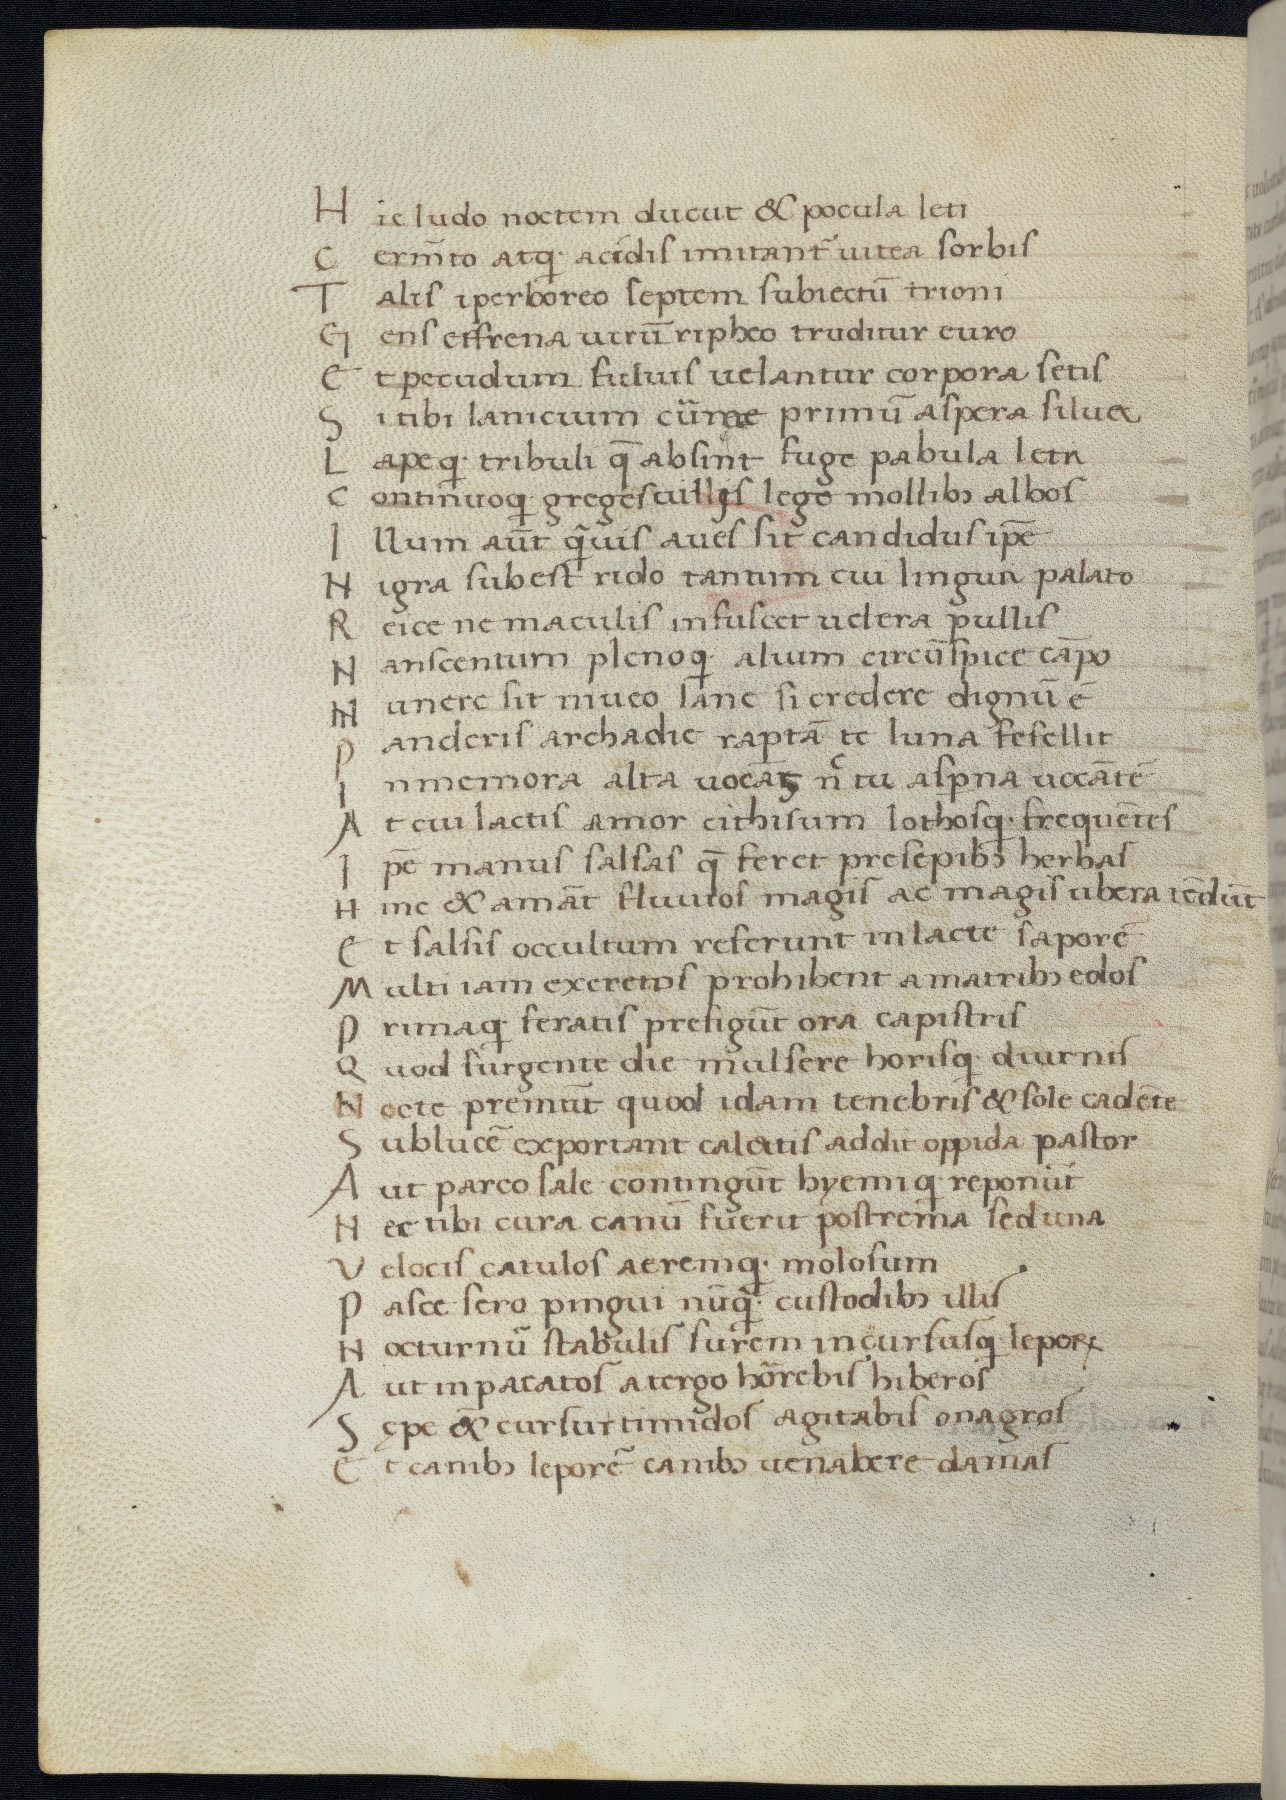 H ic ludo noctem ducut & pocula leti
C erm̄to atq; acidis imitant̄ uitea sorbis
T alis iperboreo septem subiectū trioni
G ens effrena uirū ripheo truditur euro
E t pecudum fuluis uelantur corpora setis
S i tibi lanicium cū primū aspera silua
L apeq; tribuli q̄ absint fuge pabula leta
C ontinuoq; greges uillis lege mollib; albos
I llum aūt q̄uis aues sit candidus ip̄e
N igra subest rido tantum cui lingua palato
R eice ne maculis infuscet uelera pullis
N anscentum plenoq; alium circūspice cāpo
M unere sit niueo sane si credere dignū ē
P anderis archadie raptā te luna fefellit
I nmemora alta uocās n̄ tu aspna uocātē
A t cui lactis amor cithisum lothosq; frequētes
I pē manus salsas q̄ feret presepib; herbas
H inc & amāt fluuios magis ac magis ubera tēdūt
E t salsis occultum referunt in lacte saporē
M ulti iam excretos prohibent a matrib; edos
P rimaq; feratis prefigūt ora capistris
Q uod surgente die mulsere horisq; diurnis
N octe premūt quod idam tenebris & sole cadēte
S ublucē exportant calatis addit oppida pastor
A ut parco sale contingūt hyemiq; reponūt
N ec tibi cura canū fuerit postrema sed una
V elocis catulos acremq; molosum
P asce sero pingui nūq̄; custodib; illis
N octurnū stabulis furem incursusq; lepoꝝ
A ut inpacatos a tergo horrebis hiberos
S ępe & cursur timidos agitabis onagros
E t canib; leporē canib; uenabere damas